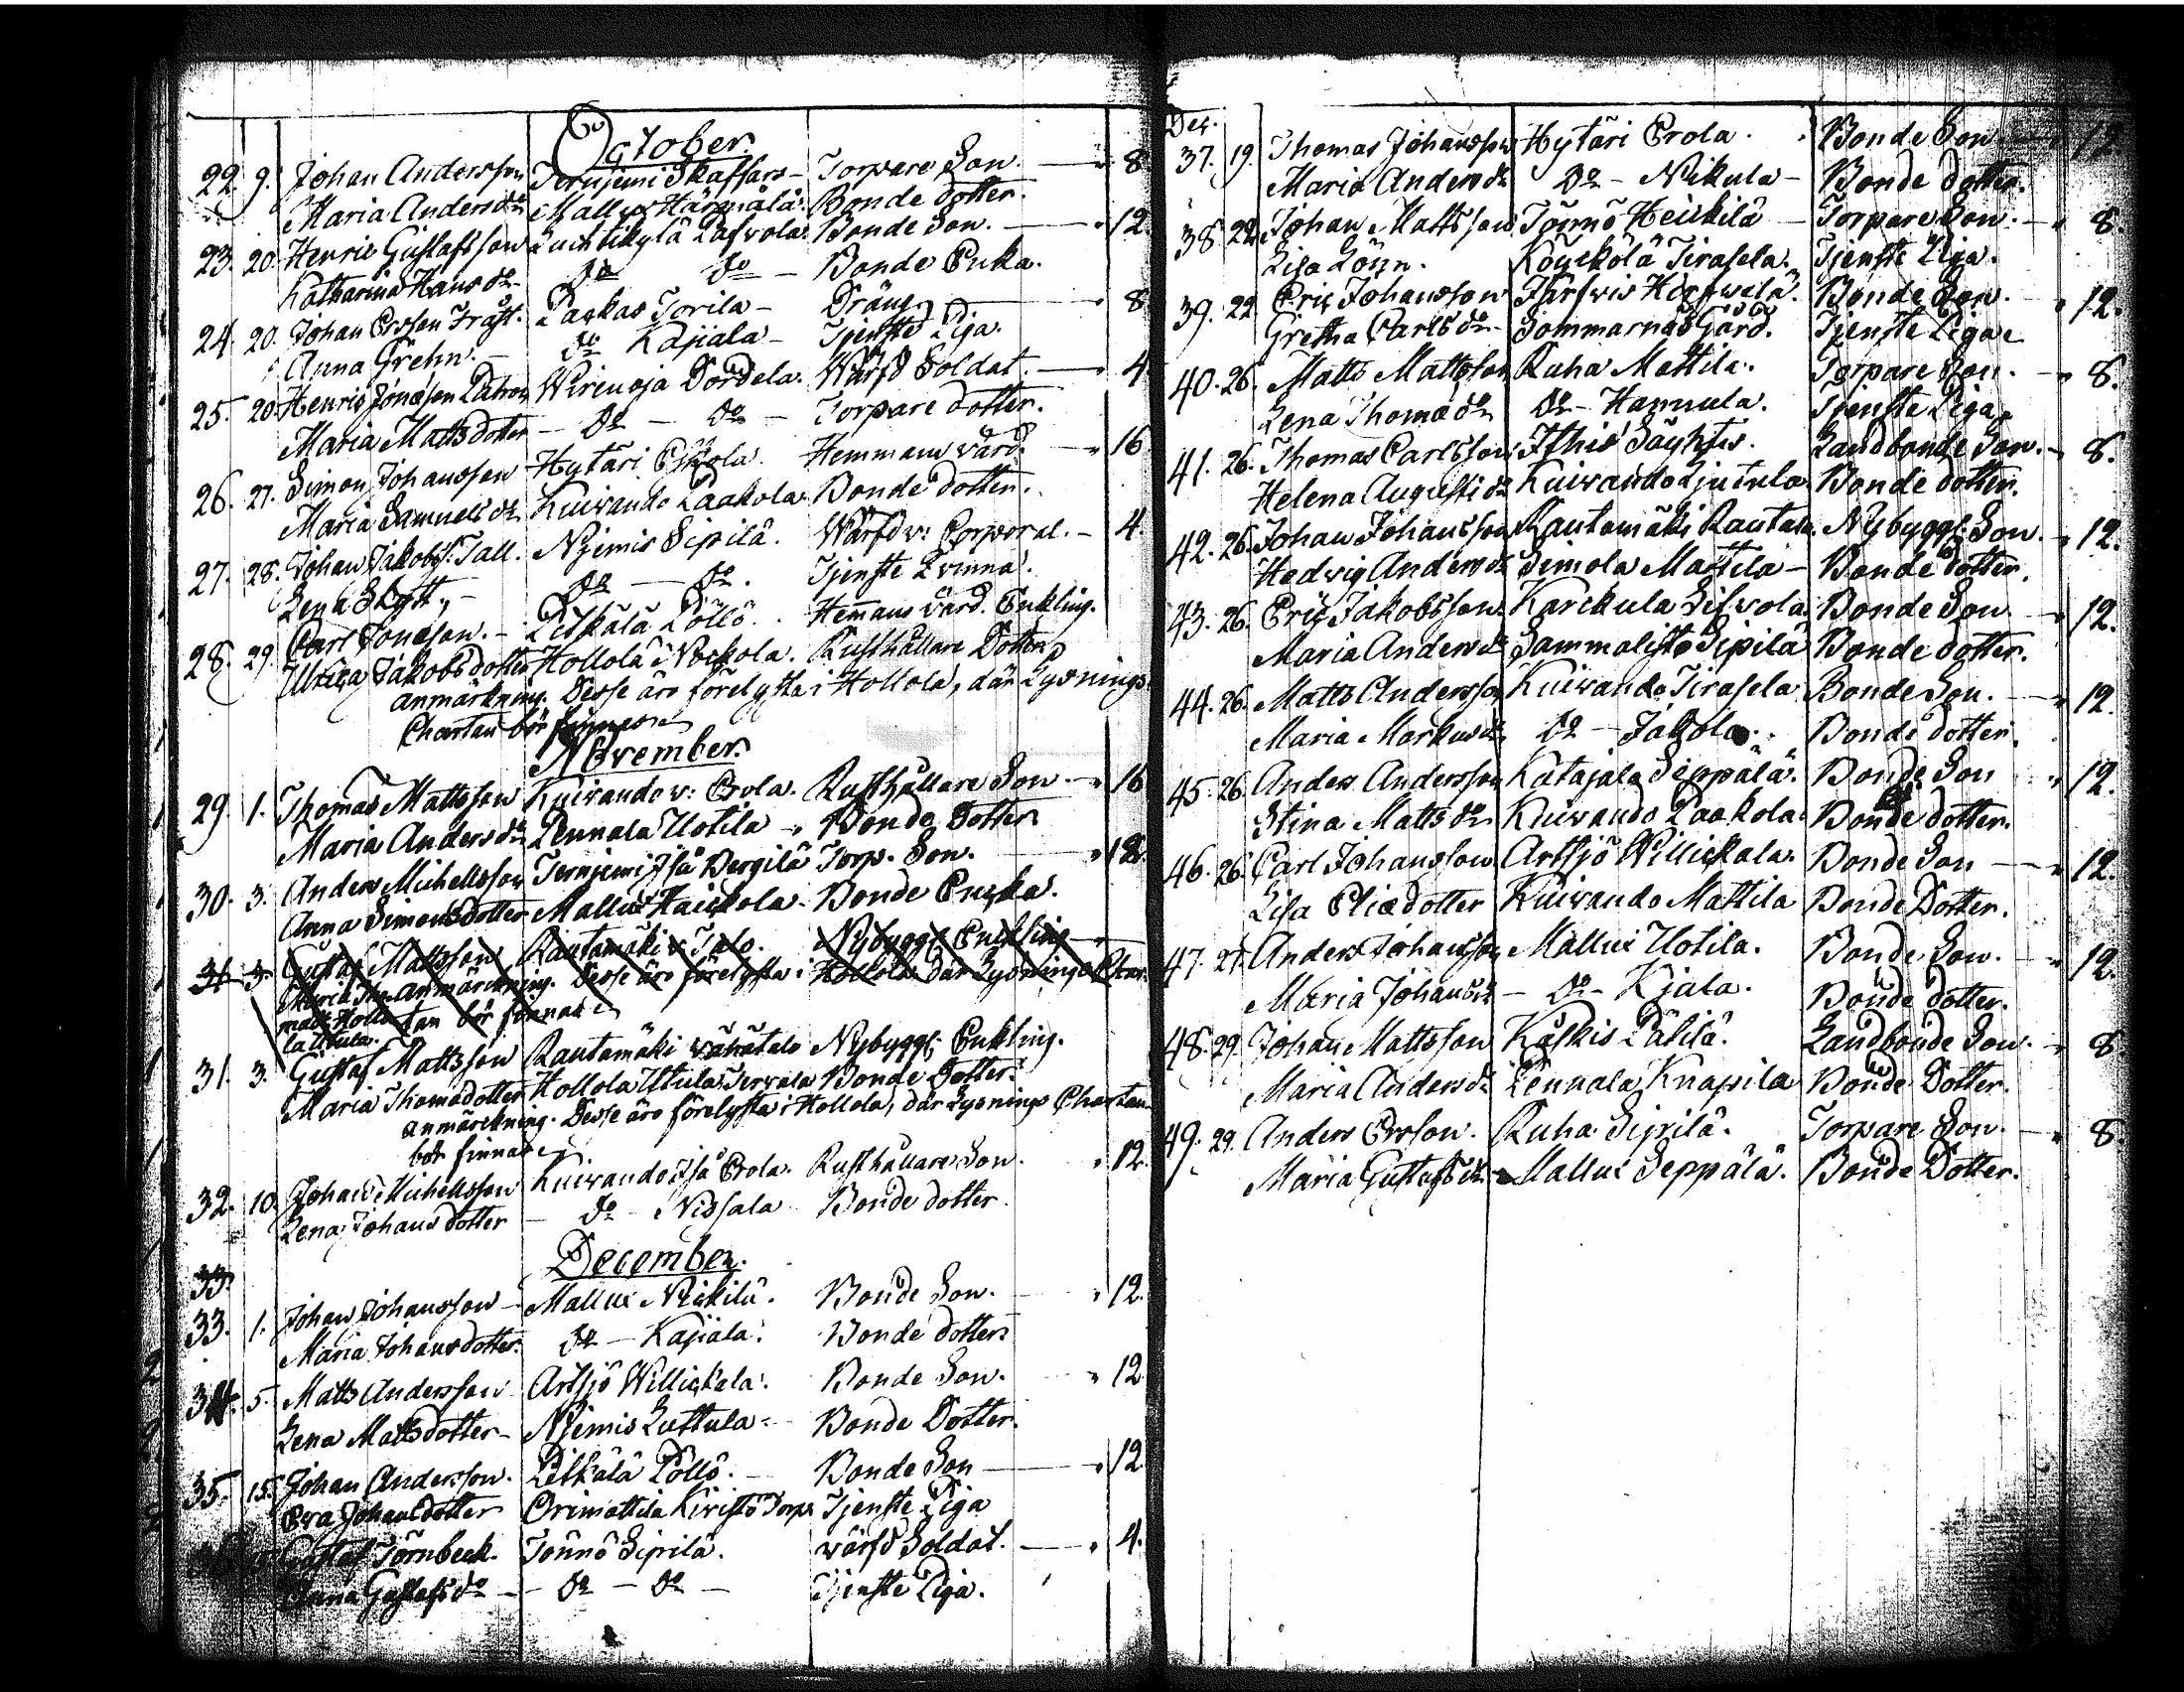 October.
22. 9. Johan Andersson Terujemi Skaffars - Torpare Son. 8
Maria Anders dr Mallus Härmälä. Bonde dotter.
23. 20. Henric Gustafsson Luchtikylä Lafvola. Bonde Son. 12
Katharina Hans dr do do - Bonde Enka.
24. 20. Johan Ersson Fräst. Paskas Torila - Dräng 8
Anna Grehn. - do Kajiala - Tjenste Piga.
25. 20. Henric Jonæson Wirenoja Dordela. Wärfd Soldat. 4
Maria Matts dotter - do - do - Torpare dotter.
26. 27. Simon Johansson Hytäri Eskola. Hemmans värd. 16
Maria Samuels dr Kuivando Paakola Bonde dotter.
27. 28. Johan Jakobss: Tall. Njemis Sipilä. Wärfd v: Corporal. - 4.
Lena Skytt, - do - do. Tjenste Qvinna.
28. 29. Carl Jonæson. - Pitkälä Pöllö. Hemans värd. Enkling.
Ulrica Jakobs dotter Hollola Nockola. Rusthållare Dotter
Anmärkning. Desse äro förelysta i Hollola, där Lysnings
Chartan bör finnas.
November.
29. 1. Thomas Mattsson Kuivando v: Erola. Rusthållare Son. 16
Maria Anders dr Pennala Uotila - Bonde Dotter
30. 3. Anders Michellsson Terujemi Iså Pergilä Torp. Son. 12.
Anna Simons dotter Mallus Haickola. Bonde Encka.
31 3. Gustaf Mattsson Rautamäki v: Talo. Nybygg: Enkling
Maria Tho- Anmärckning. Desse äro förelysta i Hollola, där Lysnings Char-
madr Hollo- tan bör finnas
la Utula.
31. 3. Gustaf Mattsson Rautamäki Vähätalo Nybygg: Enkling.
Maria Thomædotter Hollola Utula Jervala Bonde Dotter.
Anmärckning. Desse äro förelysta i Hollola, där Lysnings Chartan
bör finnas.
32. 10. Johan Michellsson Kuivando Iså Erola. Rusthållare Son. 12.
Lena Johans dotter - do - Nissala Bonde dotter.
December.
33.
33. 1. Johan Johansson - Mallus Nickilä. Bonde Son. 12.
Maria Johans dotter. do - Kajiala. Bonde dotter
34. 5. Matts Andersson Artsjö Willickala. Bonde Son. 12
Lena Matts dotter - Njemis Luttula - Bonde Dotter.
35. 15. Johan Andersson. Pitkälä Pöllö. - Bonde Son 12
Eva Johans dotter Orimattila Kivistö Torp. Tjenste Piga
Gustaf Törnbeck. Tönnö Sipilä. värfd Soldat. 4.
Anna Gustafs dr - do - do - Tjenste Piga.
Dec.
37. 19. Thomas Johansson Hytäri Erola. Bonde Son 12.
Maria Anders dr do - Nikula - Bonde dotter.
38 22. Johan Mattsson Tönnö Heickilä Torpare Son. 8.
Lisa Lönn. Köyckölä Tirasela. Tjenste Piga.
39. 22 Eric Johansson Järfvis Hörfvelä. Bonde Son. 12.
Gretha Carls dr - Sommarnäs Gård. Tjenste Piga
40. 26. Matts Mattsson Ruha Mattila. Torpare Son. 8.
Lena Thomæ dr do - Hannula. Tjenste Piga.
41. 26. Thomas Carlsson Ithis Säyhtis. Landbonde Son. 8.
Helena Augusti dr Kuivando Ljutula Bonde dotter.
42. 26. Johan Johansson Rautamäki Rautala. Nybygg: Son. 12.
Hedvig Anders dr Simola Mattila - Bonde dotter.
43. 26. Eric Jakobsson Karckula Sifvola Bonde Son 12.
Maria Anders dr Sammalisto Sipilä Bonde dotter.
44. 26. Matts Andersson Kuivando Tirasela Bonde Son. 12.
Maria Markus dr do - Jakola. Bonde dotter.
45. 26. Anders Andersson Katajala Seppälä. Bonde Son 12.
Stina Matts dr Kuivando Paakola Bonde dotter.
46. 26. Carl Johansson Artsjö Willickala. Bonde Son 12.
Lisa Eliædotter Kuivando Mattila Bonde Dotter.
47. 27. Anders Johansson Mallus Uotila. Bonde Son. 12.
Maria Johans dr - do - Kjala. Bonde dotter.
48. 29. Johan Mattsson Kåskis Pätilä. Landbonde Son. 8.
Maria Anders dr Pennala Knapila Bonde Dotter.
49. 29. Anders Ersson. Ruha Sipilä. Torpare Son. 8.
Maria Gustafs dr Mallus Seppälä. Bonde Dotter.